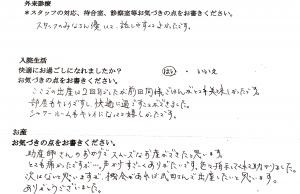 外来診療
*スタッフの対応、待合室、診察室等お気づきの点をお書きください。
スタッフのみなさん優しくて、話しやすくてよかったです。
入院生活
快適にお過ごしになれましたか? はい ・ いいえ
お気づきの点をお書きください。
ここでの出産は2回目でしたが前回同様ごはんがとても美味しかったです。
部屋もキレイですし、快適に過ごすことができました。
シャワールームもキレイになってて嬉しかったです。
お産
お気づきの点をお書きください。
助産師さんのおかげでスムーズなお産ができたと思います。
とても痛かったですが、声かけすごくありがたいです。
次はないと思いますが、機会があれば 出産したいと思います。
ありがとうございました。